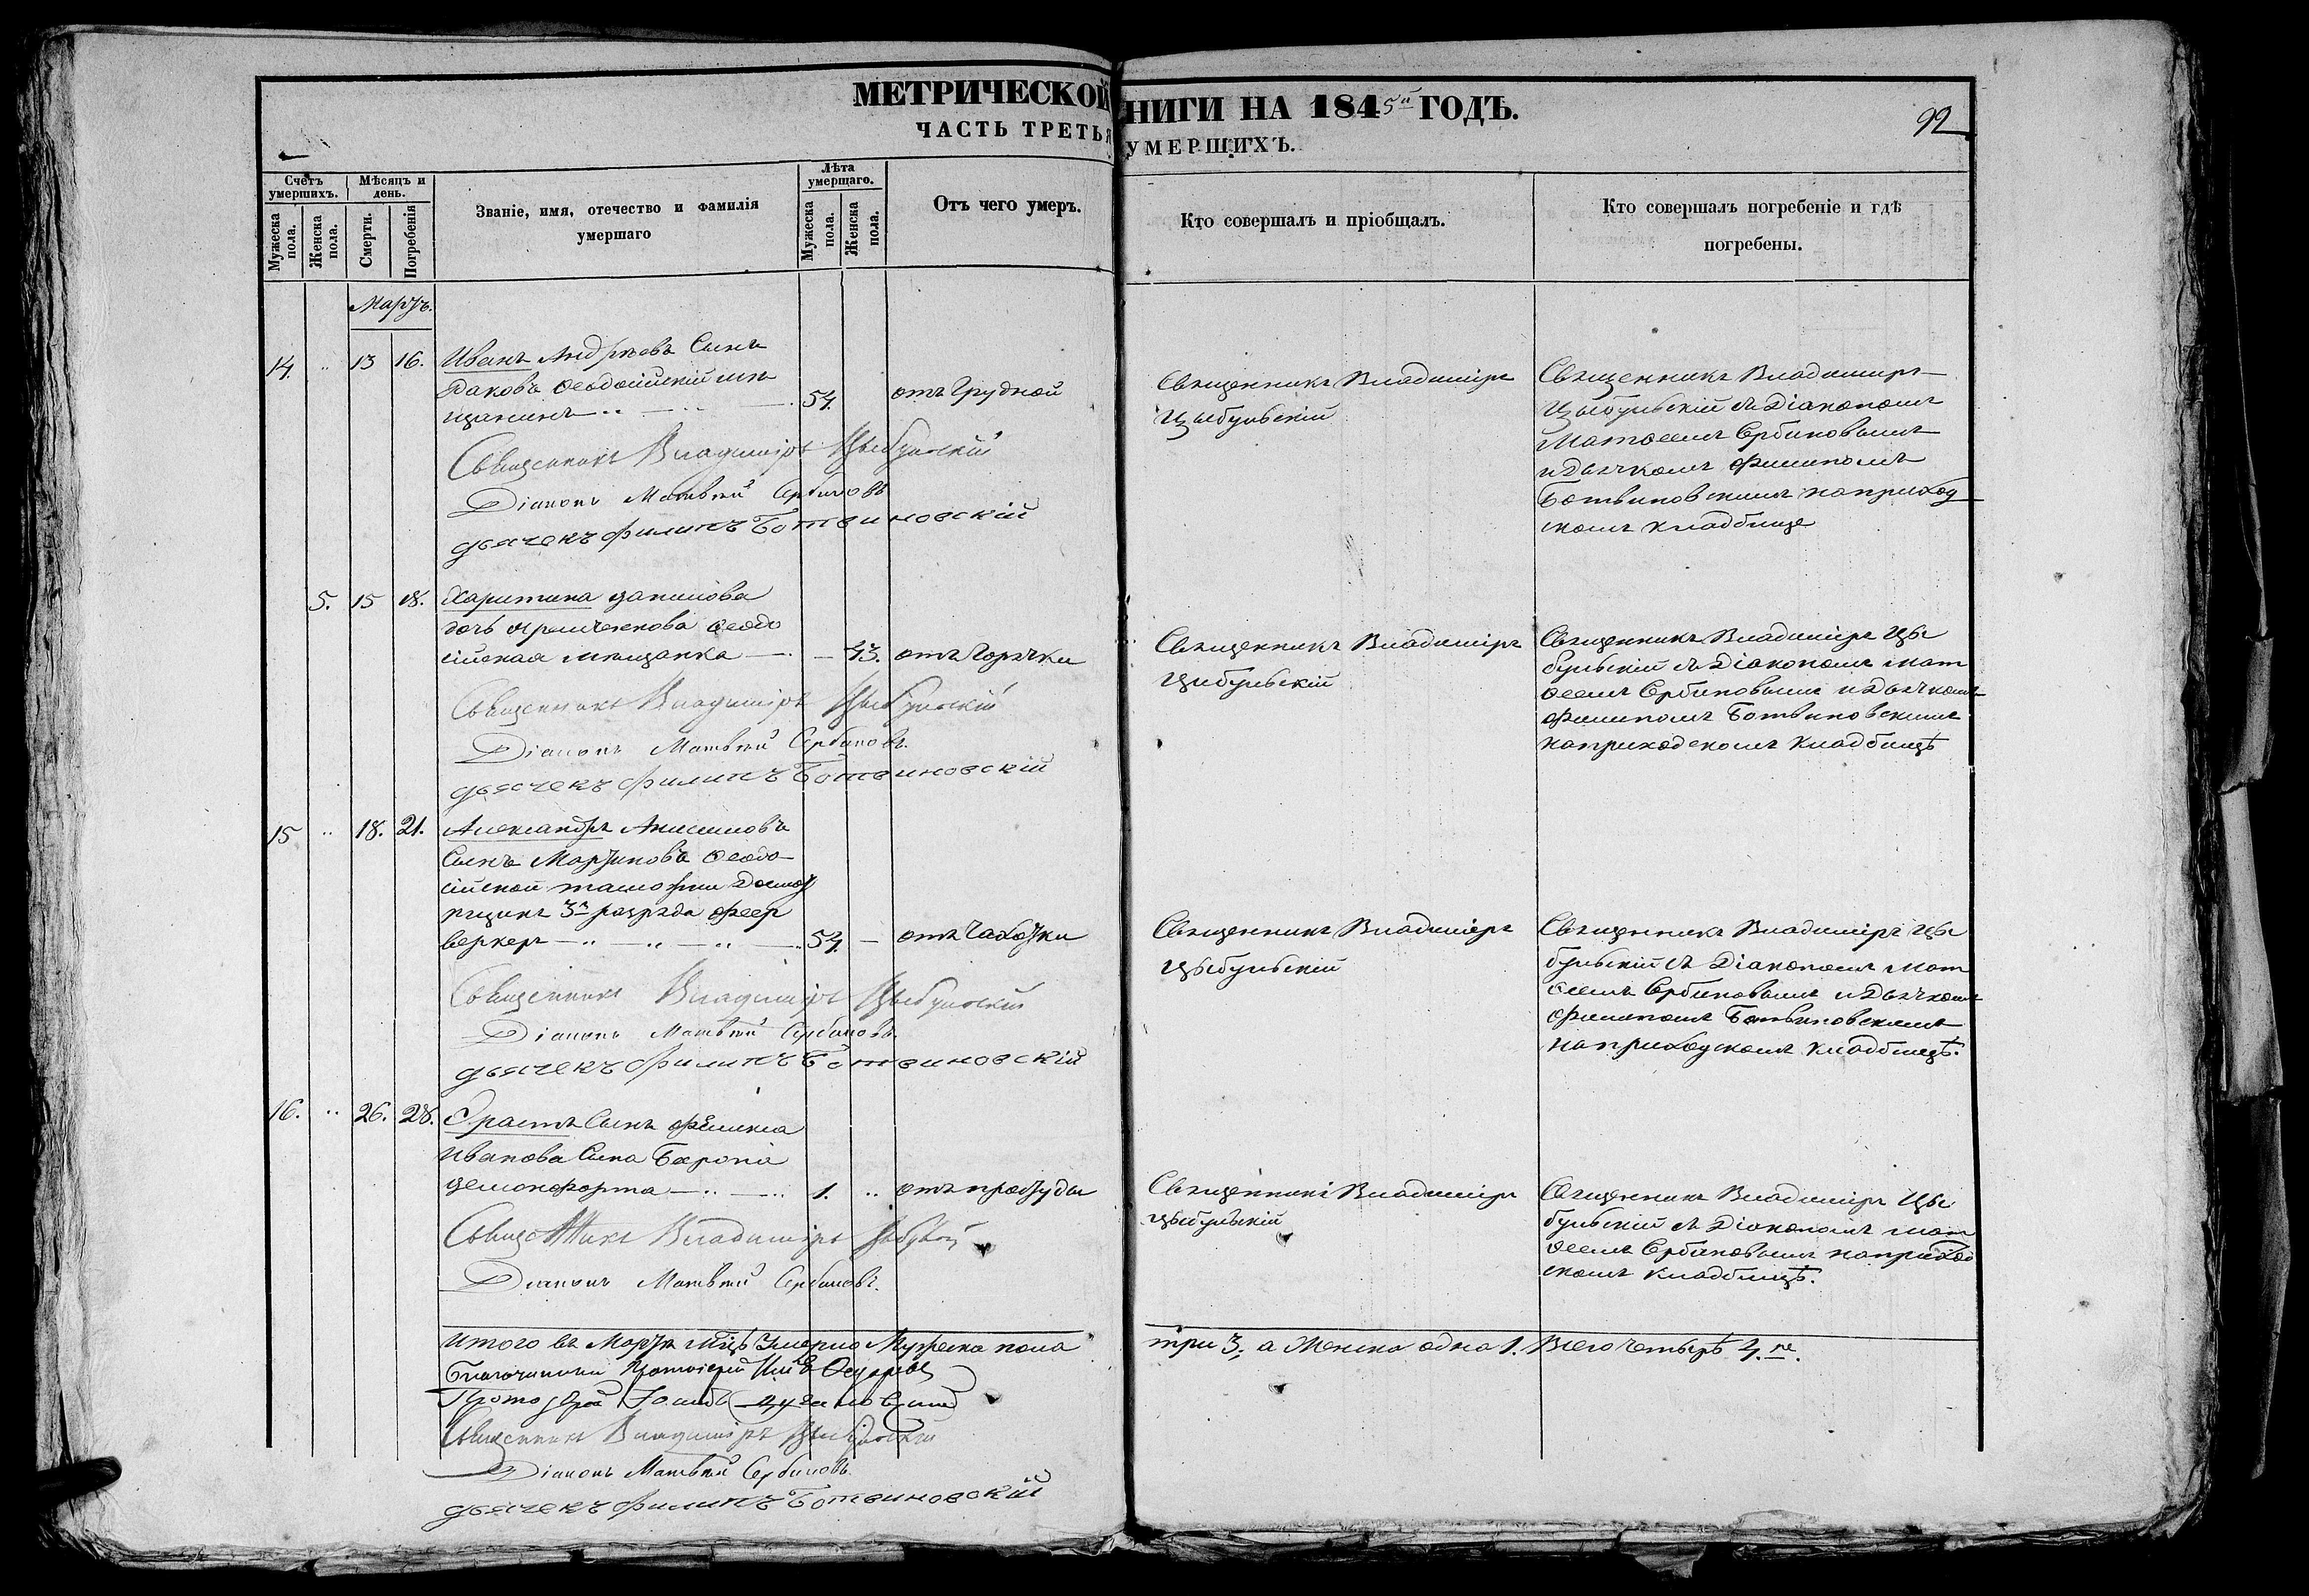 МЕТРИЧЕСКОЙ
НИГИ НА 1845й ГОДЪ.
ЧАСТЬ ТРЕТЬЯ
УМЕРШИХЪ.
92
Счетъ умершихъ.
Мѣсяцъ и день.
Званіе, имя, отечество и фамилія умершаго
Лѣта умершаго.
Отъ чего умеръ.
Кто совершалъ и пріобщалъ.
Кто совершалъ погребеніе и гдѣ погребены.
Мужеска пола.
Женска пола.
Смерти.
Погребенія
Мужеска пола.
Женска пола.
Мартъ.
14. „ 13 16. Иванъ Андреевъ Сынъ
Ѳеодосійскій мѣ
щанинъ 54. отъ Грудной
Священникъ Владиміръ
Цыбульскій
Священникъ Владимиръ
Цыбульскій съ Діакономъ
Матѳеемъ Сербиновымъ
и Дьячкомъ Филипомъ
Ботвиновскимъ на приход
скомъ кладбище
Священникъ Владиміръ Цыбульскій
Діаконъ Матвѣй Сербиновъ
дьячекъ Филипъ Ботвиновскій
5. 15 18. Харитина Данилова
дочь Ѳеодо
сійская мѣщанка 43. отъ Горячки
Священникъ Владиміръ
Цибульскій
Священникъ Владиміръ Цы
бульскій съ Діакономъ Мат
ѳеемъ Сербиновымъ и Дьячкомъ
Филипомъ Ботвиновскимъ
на приходскомъ кладбищѣ
Священникъ Владиміръ Цыбульскій
Діаконъ Матвѣй Сербиновъ.
дьячекъ Филипъ Ботвиновскій
15 „ 18. 21. Александръ Анисимовъ
Сынъ Мартиновъ Ѳеодо
сійской таможни Досмот
рщикъ 3го разряда Феер
веркеръ 54. отъ Чахотки
Священникъ Владиміръ
Цыбульскій
Священникъ Владиміръ Цы
бульскій съ Діакономъ Мат
ѳеемъ Сербиновымъ и Дьячкомъ
Филипомъ Ботвиновскимъ
на приходскомъ кладбищѣ.
Священникъ Владиміръ Цыбульскій
Діаконъ Матвѣй Сербиновъ.
дьячекъ Филипъ Ботвиновскій
16. „ 26. 28. Эрастъ Сынъ Феликса
Иванова Сына Барона
1. „ отъ простуды
Священникъ Владиміръ
Цыбульскій
Священникъ Владиміръ Цы
бульскій съ Діакономъ Мат
ѳеемъ Сербиновымъ на приход
скомъ кладбищѣ.
Священникъ Владиміръ
Діаконъ Матвѣй Сербиновъ.
Итого въ Мартѣ м-цѣ Умерло Мужеска пола
три 3, а Женска одна 1. Всего четырѣ 4.ре
Благочинный Протоіерей
Протоіерей
Священникъ Владиміръ Цыбульскій
Діаконъ Матвѣй Сербиновъ.
дьячекъ Филипъ Ботвиновскій